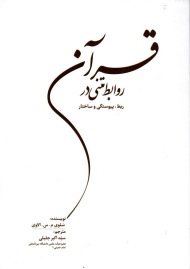 روابط متنی در
قرآن
ربط، پیوستگی و ساختار
نویسنده:
سلوی م. س. الاوی
مترجم:
سید اکبر جلیلی